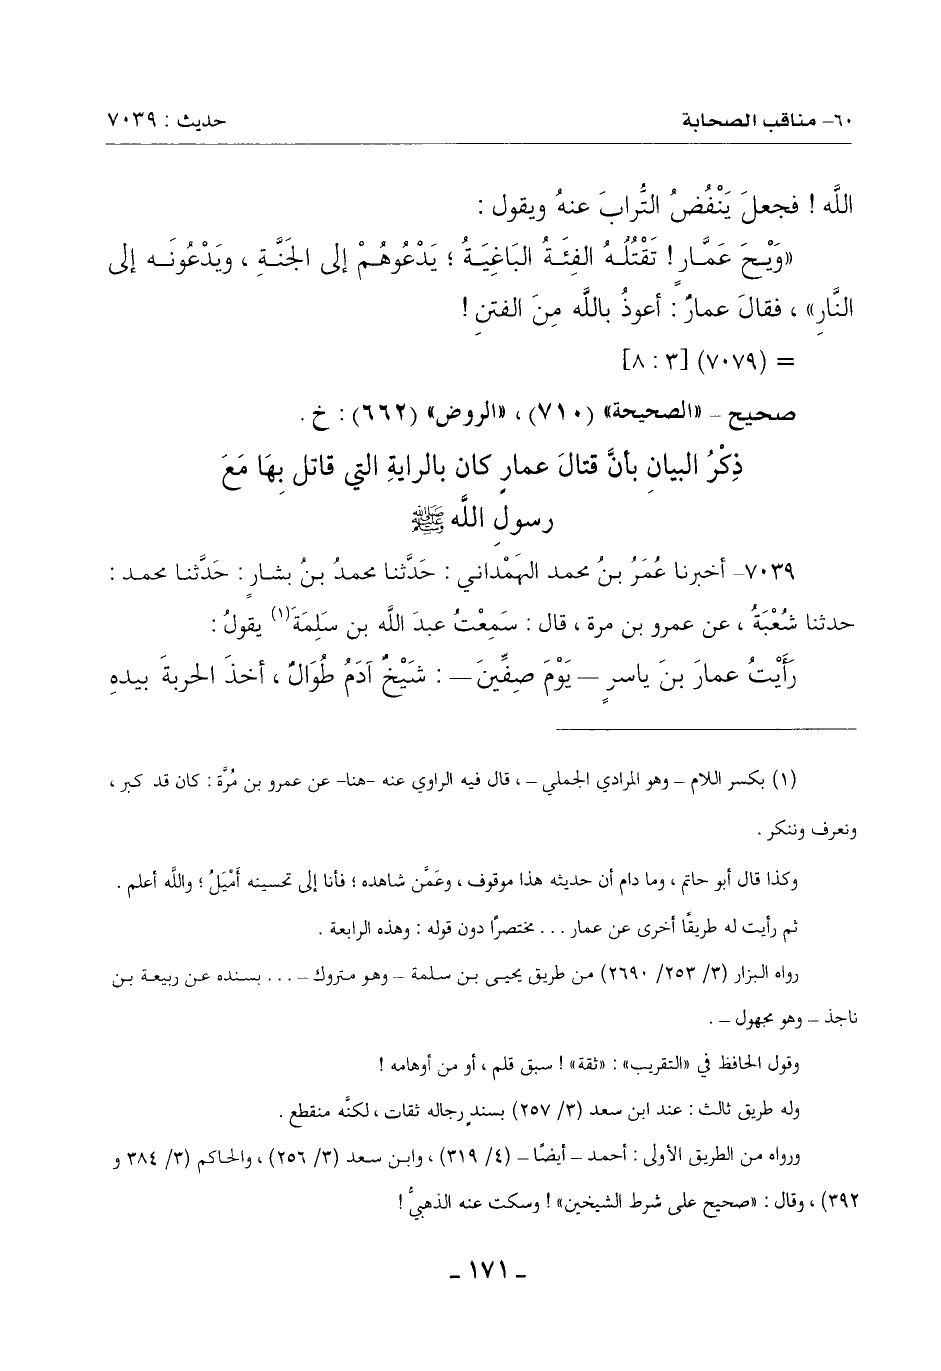 ٦٠- مناقب الصحابة حديث : ٧٠٣٩
اللَّه ! فجعلَ يَنْفُضُ التُّرابَ عنهُ ويقول :
«وَيْحَ عَمَّارٍ! تَقْتُلُهُ الفِئَةُ البَاغِيَةُ ؛ يَدْعُوهُمْ إلى الجَنَّةِ ، ويَدْعُونَه إلى
النَّارِ» ، فقالَ عمارٌ : أعوذُ باللَّه مِنَ الفتنِ !
= (٧٠٧٩) [٣ : ٨]
صحيح – «الصحيحة» (٧١٠) ، «الروض» (٦٦٢) : خ .
ذِكْرُ البيانِ بأنَّ قتالَ عمارٍ كان بالرايةِ التي قاتل بِهَا مَعَ
رسولِ اللَّه ﷺ
٧٠٣٩– أخبرنا عُمَرُ بنُ محمد الهَمْداني : حَدَّثنا محمدُ بنُ بشارٍ : حَدَّثنا محمد :
حدثنا شُعْبَةُ ، عن عمرو بن مرة ، قال : سَمِعْتُ عبدَ اللَّه بن سَلِمَةَ(١) يقولُ :
رَأَيْتُ عمارَ بنَ ياسرٍ – يَوْمَ صِفِّينَ – : شَيْخٌ آدَمُ طُوَالٌ ، أخذَ الحربةَ بيدهِ
(١) بكسر اللام – وهو المرادي الجملي – ، قال فيه الراوي عنه -هنا- عن عمرو بن مُرَّة : كان قد كبر ،
ونعرف وننكر .
وكذا قال أبو حاتم ، وما دام أن حديثه هذا موقوف ، وعَمَّن شاهده ؛ فأنا إلى تحسينه أَمْيَلُ ؛ واللَّه أعلم .
ثم رأيت له طريقًا أخرى عن عمار ... مختصرًا دون قوله : وهذه الرابعة .
رواه البزار (٣/ ٢٥٣/ ٢٦٩٠) من طريق يحيى بن سلمة – وهو متروك – ... بسنده عن ربيعة بن
ناجذ – وهو مجهول – .
وقول الحافظ في «التقريب» : «ثقة» ! سبق قلم ، أو من أوهامه !
وله طريق ثالث : عند ابن سعد (٣/ ٢٥٧) بسندٍ رجاله ثقات ، لكنَّه منقطع .
ورواه من الطريق الأولى : أحمد – أيضًا – (٤/ ٣١٩) ، وابن سعد (٣/ ٢٥٦) ، والحاكم (٣/ ٣٨٤ و
٣٩٢) ، وقال : «صحيح على شرط الشيخين» ! وسكت عنه الذهبيُّ !
- ١٧١ -